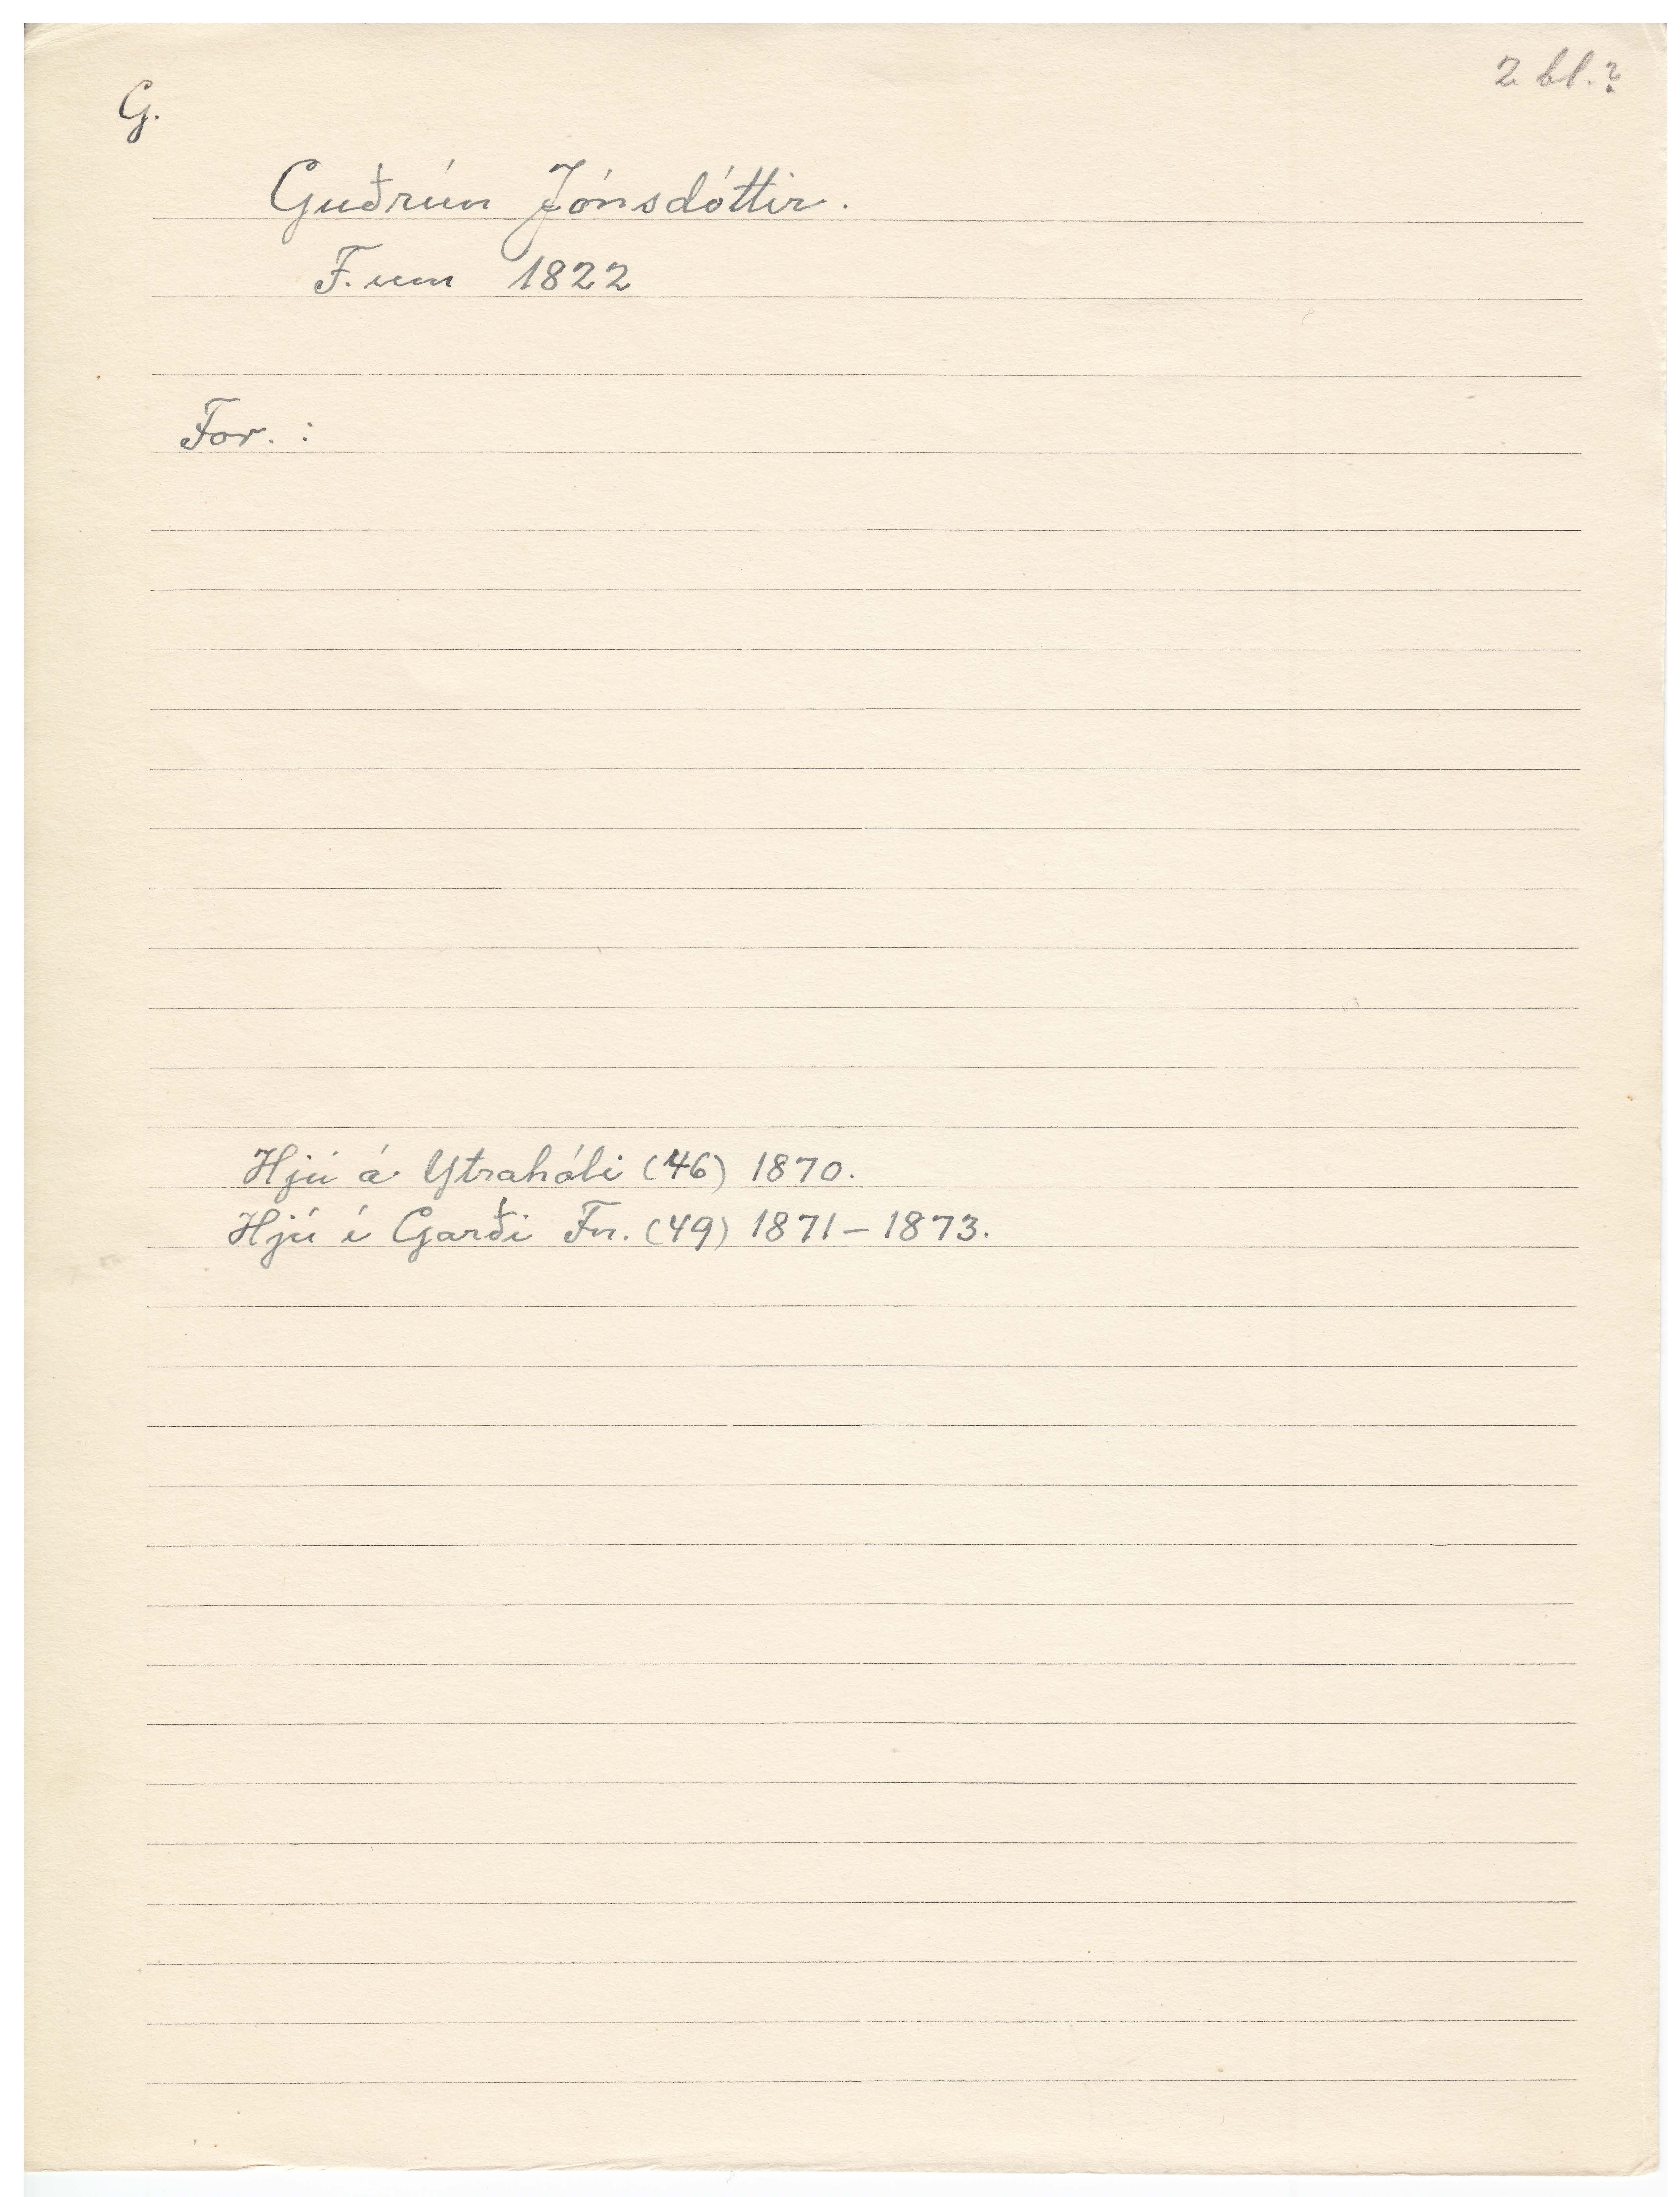 2 bl.?
G.
Guðrún Jónsdóttir.
F. um 1822
For. :
Hjú á Ytrahóli (46) 1870.
Hjú í Garði Fn. (49) 1871 – 1873.